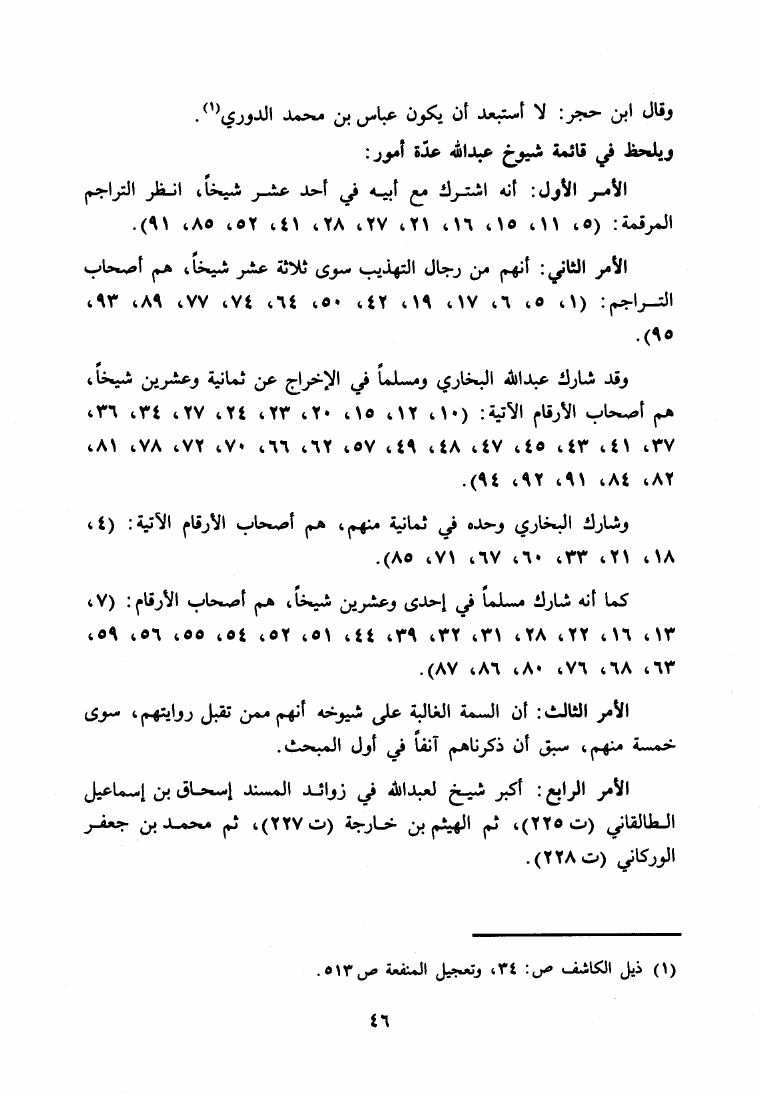 وقال ابن حجر: لا أستبعد أن يكون عباس بن محمد الدوري(١).
ويلحظ في قائمة شيوخ عبدالله عدّة أمور:
الأمر الأول: أنه اشترك مع أبيه في أحد عشر شيخاً، انظر التراجم
المرقمة: (٥، ١١، ١٥، ١٦، ٢١، ٢٧، ٢٨، ٤١، ٥٢، ٨٥، ٩١).
الأمر الثاني: أنهم من رجال التهذيب سوى ثلاثة عشر شيخاً، هم أصحاب
التراجم: (١، ٥، ٦، ١٧، ١٩، ٤٢، ٥٠، ٦٤، ٧٤، ٧٧، ٨٩، ٩٣،
٩٥).
وقد شارك عبدالله البخاري ومسلماً في الإخراج عن ثمانية وعشرين شيخاً،
هم أصحاب الأرقام الآتية: (١٠، ١٢، ١٥، ٢٠، ٢٣، ٢٤، ٢٧، ٣٤، ٣٦،
٣٧، ٤١، ٤٣، ٤٥، ٤٧، ٤٨، ٤٩، ٥٧، ٦٢، ٦٦، ٧٠، ٧٢، ٧٨، ٨١،
٨٢، ٨٤، ٩١، ٩٢، ٩٤).
وشارك البخاري وحده في ثمانية منهم، هم أصحاب الأرقام الآتية: (٤،
١٨، ٢١، ٣٣، ٦٠، ٦٧، ٧١، ٨٥).
كما أنه شارك مسلماً في إحدى وعشرين شيخاً، هم أصحاب الأرقام: (٧،
١٣، ١٦، ٢٢، ٢٨، ٣١، ٣٢، ٣٩، ٤٤، ٥١، ٥٢، ٥٤، ٥٥، ٥٦، ٥٩،
٦٣، ٦٨، ٧٦، ٨٠، ٨٦، ٨٧).
الأمر الثالث: أن السمة الغالبة على شيوخه أنهم ممن تقبل روايتهم، سوى
خمسة منهم، سبق أن ذكرناهم آنفاً في أول المبحث.
الأمر الرابع: أكبر شيخ لعبدالله في زوائد المسند إسحاق بن إسماعيل
الطالقاني (ت ٢٢٥)، ثم الهيثم بن خارجة (ت ٢٢٧)، ثم محمد بن جعفر
الوركاني (ت ٢٢٨).
(١) ذيل الكاشف ص: ٣٤، وتعجيل المنفعة ص ٥١٣.
٤٦